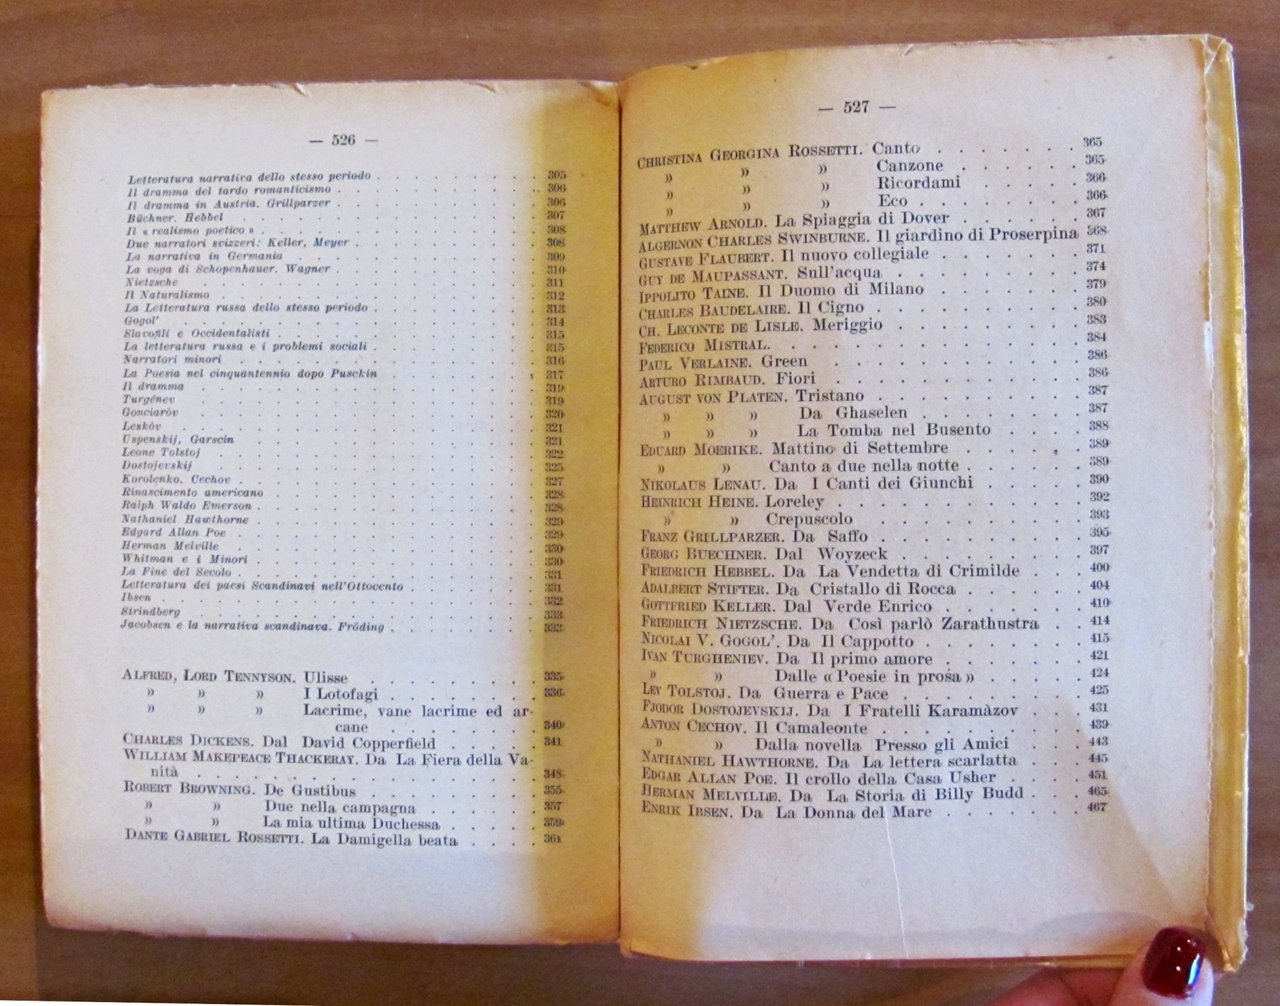 — 526 —
Letteratura narratica dello stesso periodo . . . . . . . 305
Il dramma del tardo romanticismo . . . . . . . . 306
Il dramma in Austria. Grillparzer . . . . . . . . 306
Büchner. Hebbel . . . . . . . . . . . 307
Il « realismo poetico » . . . . . . . . . . 308
Due narratori svizzeri: Keller, Meyer . . . . . . . 308
La narrativa in Germania . . . . . . . . . 309
La voga di Schopenhauer. Wagner . . . . . . . . 310
Nietzsche . . . . . . . . . . . . 311
Il Naturalismo . . . . . . . . . . . 312
La Letteratura russa dello stesso periodo . . . . . . 313
Gogol' . . . . . . . . . . . . . 314
Slavofili e Occidentalisti . . . . . . . . . 315
La letteratura russa e i problemi sociali . . . . . . 315
Narratori minori . . . . . . . . . . . 316
La Poesia nel cinquantennio dopo Pusckin . . . . . . 317
Il dramma . . . . . . . . . . . . 319
Turgénev . . . . . . . . . . . . 319
Gonciaròv . . . . . . . . . . . . 320
Leskòv . . . . . . . . . . . . . 321
Uspenskij, Garscin . . . . . . . . . . 321
Leone Tolstoj . . . . . . . . . . . 322
Dostojevskij . . . . . . . . . . . . 325
Korolenko. Cechov . . . . . . . . . . . 327
Rinascimento americano . . . . . . . . . 328
Ralph Waldo Emerson . . . . . . . . . . 328
Nathaniel Hawthorne . . . . . . . . . . 329
Edgard Allan Poe . . . . . . . . . . . 329
Herman Melville . . . . . . . . . . . 330
Whitman e i Minori . . . . . . . . . . 330
La Fine del Secolo . . . . . . . . . . 331
Letteratura dei paesi Scandinavi nell'Ottocento . . . . . 331
Ibsen . . . . . . . . . . . . . 332
Strindberg . . . . . . . . . . . . 333
Jacobsen e la narrativa scandinava. Fröding . . . . . . 333
ALFRED, LORD TENNYSON. Ulisse . . . . . . . 335
» » » I Lotofagi . . . . . . 336
» » » Lacrime, vane lacrime ed ar-
cane . . . . . . 340
CHARLES DICKENS. Dal David Copperfield . . . . . 341
WILLIAM MAKEPEACE THACKERAY. Da La Fiera della Va-
nità . . . . . . . . . . . . 348
ROBERT BROWNING. De Gustibus . . . . . . . 355
» » Due nella campagna . . . . . 357
» » La mia ultima Duchessa . . . . 359
DANTE GABRIEL ROSSETTI. La Damigella beata . . . . 361
— 527 —
CHRISTINA GEORGINA ROSSETTI. Canto . . . . . . 365
» » » Canzone . . . . . 365
» » » Ricordami . . . . . 366
» » » Eco . . . . . . 366
MATTHEW ARNOLD. La Spiaggia di Dover . . . . . 367
ALGERNON CHARLES SWINBURNE. Il giardino di Proserpina 368
GUSTAVE FLAUBERT. Il nuovo collegiale . . . . . . 371
GUY DE MAUPASSANT. Sull'acqua . . . . . . . 374
IPPOLITO TAINE. Il Duomo di Milano . . . . . . 379
CHARLES BAUDELAIRE. Il Cigno . . . . . . . . 380
CH. LECONTE DE LISLE. Meriggio . . . . . . . 383
FEDERICO MISTRAL. . . . . . . . . . . 384
PAUL VERLAINE. Green . . . . . . . . . . 386
ARTURO RIMBAUD. Fiori . . . . . . . . . 386
AUGUST VON PLATEN. Tristano . . . . . . . . 387
» » » Da Ghaselen . . . . . . 387
» » » La Tomba nel Busento . . . . 388
EDUARD MOERIKE. Mattino di Settembre . . . . . 389
» » Canto a due nella notte . . . . . 389
NIKOLAUS LENAU. Da I Canti dei Giunchi . . . . . 390
HEINRICH HEINE. Loreley . . . . . . . . . 392
» » Crepuscolo . . . . . . . . 393
FRANZ GRILLPARZER. Da Saffo . . . . . . . . 395
GEORG BUECHNER. Dal Woyzeck . . . . . . . 397
FRIEDRICH HEBBEL. Da La Vendetta di Crimilde . . . 400
ADALBERT STIFTER. Da Cristallo di Rocca . . . . . 404
GOTTFRIED KELLER. Dal Verde Enrico . . . . . . 410
FRIEDRICH NIETZSCHE. Da Così parlò Zarathustra . . . 414
NICOLAI V. GOGOL'. Da Il Cappotto . . . . . . . 415
IVAN TURGHENIEV. Da Il primo amore . . . . . . 421
» » Dalle « Poesie in prosa » . . . . 424
LEV TOLSTOJ. Da Guerra e Pace . . . . . . . . 425
FJODOR DOSTOJEVSKIJ. Da I Fratelli Karamàzov . . . 431
ANTON CECHOV. Il Camaleonte . . . . . . . . 439
» » Dalla novella Presso gli Amici . . . 443
NATHANIEL HAWTHORNE. Da La lettera scarlatta . . . 445
EDGAR ALLAN POE. Il crollo della Casa Usher . . . . 451
HERMAN MELVILLE. Da La Storia di Billy Budd . . . 465
ENRIK IBSEN. Da La Donna del Mare . . . . . . 467